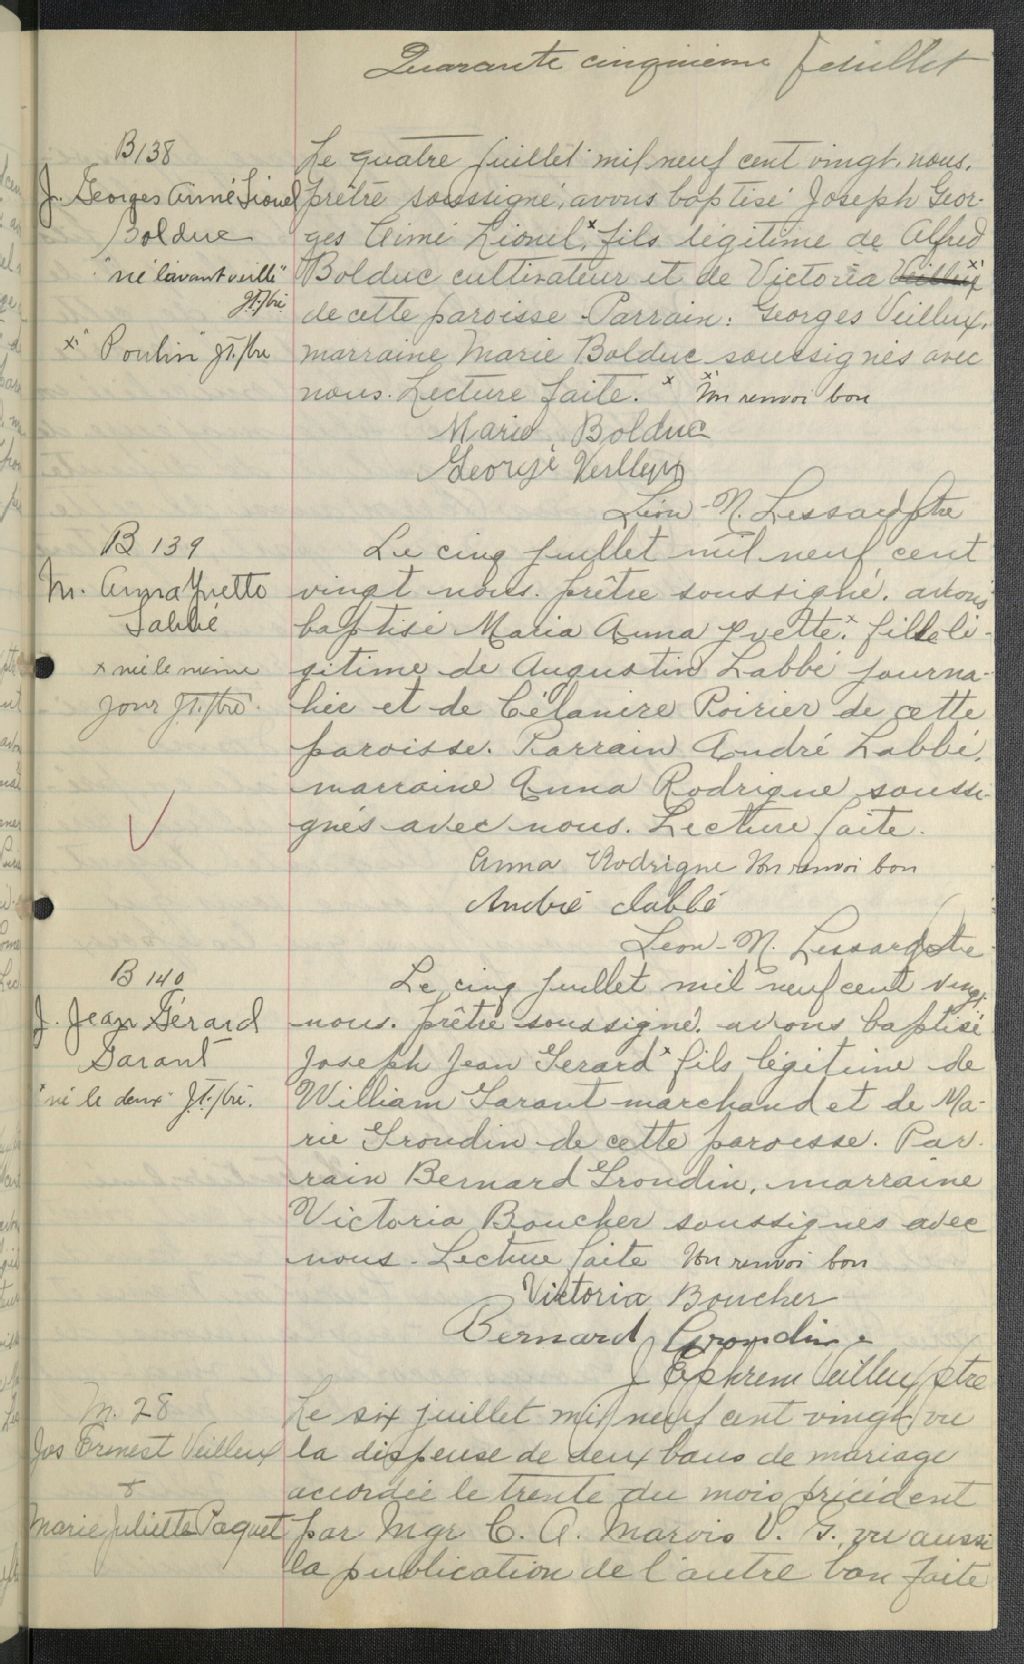 Quarante cinquième feuillet
B 138
J. Georges Aimé Lionel
Bolduc
"né l'avant veille"
x" Poulin
Le quatre juillet mil neuf cent vingt, nous,
prêtre soussigné, avons baptisé Joseph Geor-
ges Aimé Lionel,x fils légitime de Alfred
Bolduc cultivateur et de Victoria Veilleux x"
de cette paroisse. Parrain: Georges Veilleux,
marraine Marie Bolduc soussignés avec
nous. Lecture faite. x x" Un renvoi bon
Marie Bolduc
George Veilleux
Léon-N. Lessard ptre
B 139
M. Anna Yvette
Labbé
x née le même
jour
Le cinq juillet mil neuf cent
vingt nous. prêtre soussigné. avons
baptisé Maria Anna Yvette.x fille lé-
gitime de Augustin Labbé journa-
lier et de Célanire Poirier de cette
paroisse. Parrain André Labbé,
marraine Anna Rodrigue soussi-
gnés avec nous. Lecture faite.
Anna Rodrigue Un renvoi bon
André Labbé
Léon-N. Lessard ptre
B 140
J. Jean Gérard
Garant
"né le deux"
Le cinq juillet mil neuf cent vingt,
nous. prêtre soussigné. avons baptisé
Joseph Jean Gerard x fils légitime de
William Garant marchand et de Ma-
rie Grondin de cette paroisse. Par-
rain Bernard Grondin, marraine
Victoria Boucher soussignés avec
nous. Lecture faite Un renvoi bon
Victoria Boucher
Bernard Grondin
J Ephrem Veilleux ptre
M. 28
Jos Ernest Veilleux
&
Marie Juliette Paquet
Le six juillet mil neuf cent vingt, vu
la dispense de deux bans de mariage
accordée le trente du mois précédent
par Mgr C. A. Marois V. G., vu aussi
la publication de l'autre ban faite